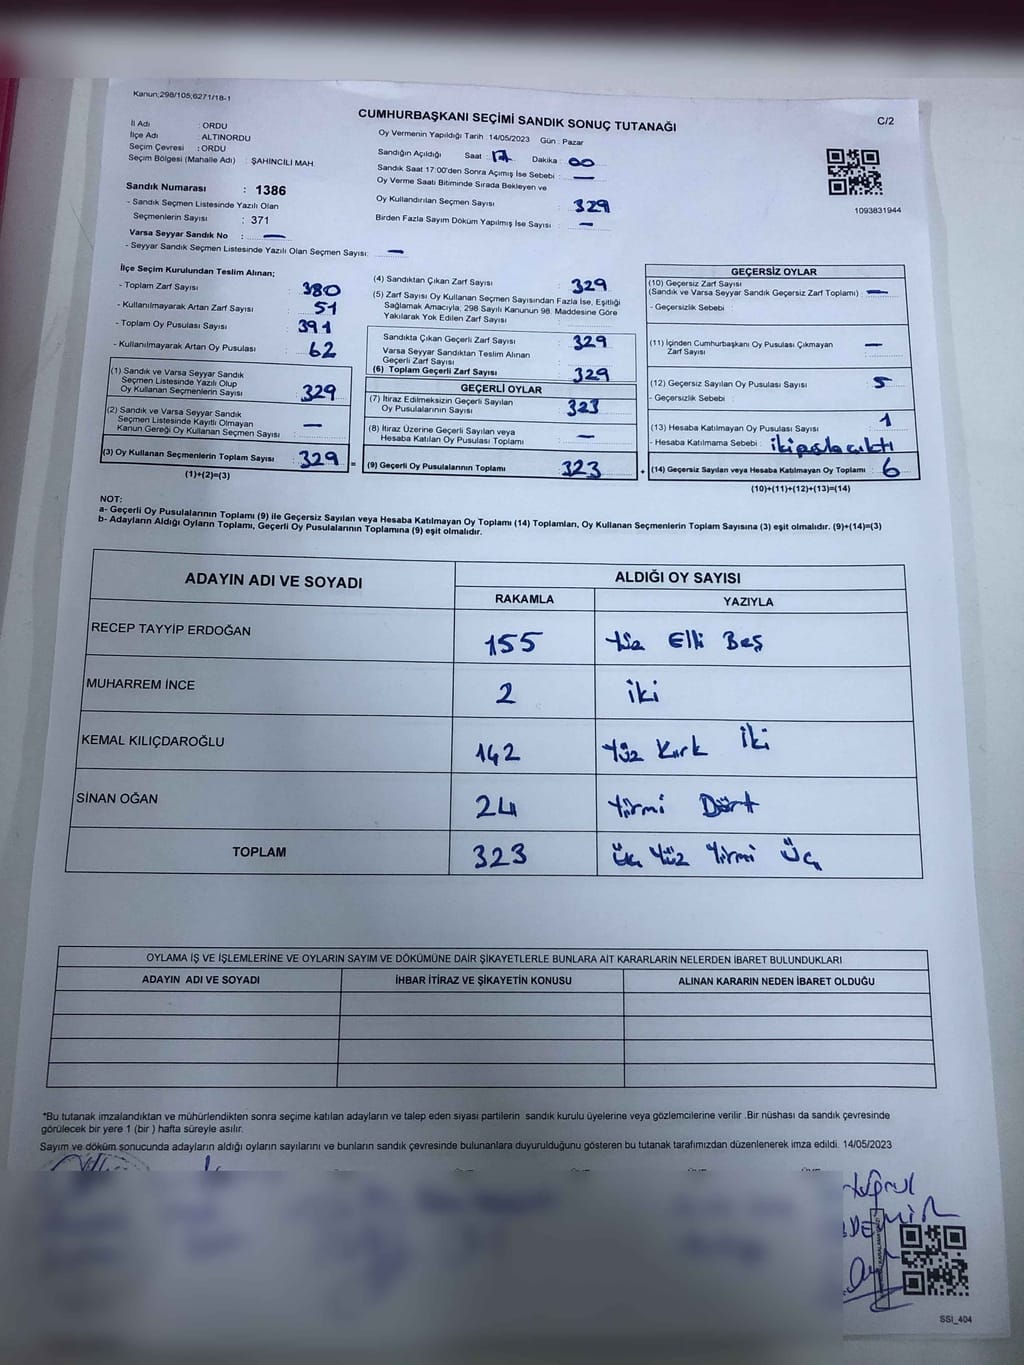 Kanun:298/105;6271/18-1
CUMHURBAŞKANI SEÇİMİ SANDIK SONUÇ TUTANAĞI
C/2
İl Adı : ORDU
İlçe Adı : ALTINORDU
Seçim Çevresi : ORDU
Seçim Bölgesi (Mahalle Adı) : ŞAHİNCİLİ MAH.
Oy Vermenin Yapıldığı Tarih : 14/05/2023 Gün : Pazar
Sandığın Açıldığı Saat : 17 Dakika : 00
Sandık Saat 17:00'den Sonra Açımış İse Sebebi : —
Oy Verme Saati Bitiminde Sırada Bekleyen ve
Oy Kullandırılan Seçmen Sayısı : 329
Birden Fazla Sayım Döküm Yapılmış İse Sayısı : —
1093831944
Sandık Numarası : 1386
- Sandık Seçmen Listesinde Yazılı Olan
Seçmenlerin Sayısı : 371
Varsa Seyyar Sandık No : —
- Seyyar Sandık Seçmen Listesinde Yazılı Olan Seçmen Sayısı: —
İlçe Seçim Kurulundan Teslim Alınan;
- Toplam Zarf Sayısı : 380
- Kullanılmayarak Artan Zarf Sayısı : 51
- Toplam Oy Pusulası Sayısı : 391
- Kullanılmayarak Artan Oy Pusulası : 62
(1) Sandık ve Varsa Seyyar Sandık
Seçmen Listesinde Yazılı Olup
Oy Kullanan Seçmenlerin Sayısı : 329
(2) Sandık ve Varsa Seyyar Sandık
Seçmen Listesinde Kayıtlı Olmayan
Kanun Gereği Oy Kullanan Seçmen Sayısı : —
(3) Oy Kullanan Seçmenlerin Toplam Sayısı : 329
(1)+(2)=(3)
(4) Sandıktan Çıkan Zarf Sayısı : 329
(5) Zarf Sayısı Oy Kullanan Seçmen Sayısından Fazla İse, Eşitliği
Sağlamak Amacıyla; 298 Sayılı Kanunun 98. Maddesine Göre
Yakılarak Yok Edilen Zarf Sayısı :
Sandıkta Çıkan Geçerli Zarf Sayısı : 329
Varsa Seyyar Sandıktan Teslim Alınan
Geçerli Zarf Sayısı :
(6) Toplam Geçerli Zarf Sayısı : 329
GEÇERLİ OYLAR
(7) İtiraz Edilmeksizin Geçerli Sayılan
Oy Pusulalarının Sayısı : 323
(8) İtiraz Üzerine Geçerli Sayılan veya
Hesaba Katılan Oy Pusulası Toplamı : —
= (9) Geçerli Oy Pusulalarının Toplamı : 323 +
GEÇERSİZ OYLAR
(10) Geçersiz Zarf Sayısı
(Sandık ve Varsa Seyyar Sandık Geçersiz Zarf Toplamı) : —
- Geçersizlik Sebebi :
(11) İçinden Cumhurbaşkanı Oy Pusulası Çıkmayan
Zarf Sayısı : —
(12) Geçersiz Sayılan Oy Pusulası Sayısı : 5
- Geçersizlik Sebebi :
(13) Hesaba Katılmayan Oy Pusulası Sayısı : 1
- Hesaba Katılmama Sebebi : iki pusla çıktı
(14) Geçersiz Sayılan veya Hesaba Katılmayan Oy Toplamı : 6
(10)+(11)+(12)+(13)=(14)
NOT:
a- Geçerli Oy Pusulalarının Toplamı (9) ile Geçersiz Sayılan veya Hesaba Katılmayan Oy Toplamı (14) Toplamları, Oy Kullanan Seçmenlerin Toplam Sayısına (3) eşit olmalıdır. (9)+(14)=(3)
b- Adayların Aldığı Oyların Toplamı, Geçerli Oy Pusulalarının Toplamına (9) eşit olmalıdır.
ADAYIN ADI VE SOYADI
ALDIĞI OY SAYISI
RAKAMLA YAZIYLA
RECEP TAYYİP ERDOĞAN 155 Yüz Elli Beş
MUHARREM İNCE 2 İki
KEMAL KILIÇDAROĞLU 142 Yüz Kırk İki
SİNAN OĞAN 24 Yirmi Dört
TOPLAM 323 Üç Yüz Yirmi Üç
OYLAMA İŞ VE İŞLEMLERİNE VE OYLARIN SAYIM VE DÖKÜMÜNE DAİR ŞİKAYETLERLE BUNLARA AİT KARARLARIN NELERDEN İBARET BULUNDUKLARI
ADAYIN ADI VE SOYADI İHBAR İTİRAZ VE ŞİKAYETİN KONUSU ALINAN KARARIN NEDEN İBARET OLDUĞU
*Bu tutanak imzalandıktan ve mühürlendikten sonra seçime katılan adayların ve talep eden siyasi partilerin sandık kurulu üyelerine veya gözlemcilerine verilir .Bir nüshası da sandık çevresinde
görülecek bir yere 1 (bir ) hafta süreyle asılır.
Sayım ve döküm sonucunda adayların aldığı oyların sayılarını ve bunların sandık çevresinde bulunanlara duyurulduğunu gösteren bu tutanak tarafımızdan düzenlenerek imza edildi. 14/05/2023
SSI_404